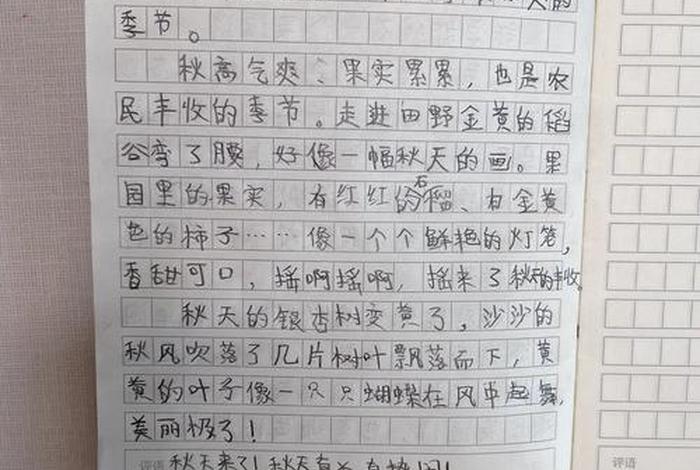 天的
季节。
秋高气爽、果实累累，也是农
民丰收的季节。走进田野金黄的稻
谷弯了腰，好像一幅秋天的画。果
园里的果实，有红红的石榴、有金黄
色的柿子……像一个个鲜艳的灯笼，
香甜可口，摇啊摇啊，摇来了秋天的丰收。
秋天的银杏树变黄了，沙沙的
秋风吹落了几片树叶飘落而下，黄
黄的叶子像一只只蝴蝶在风中起舞，
美丽极了！
评语 秋天来了！秋天有
评语